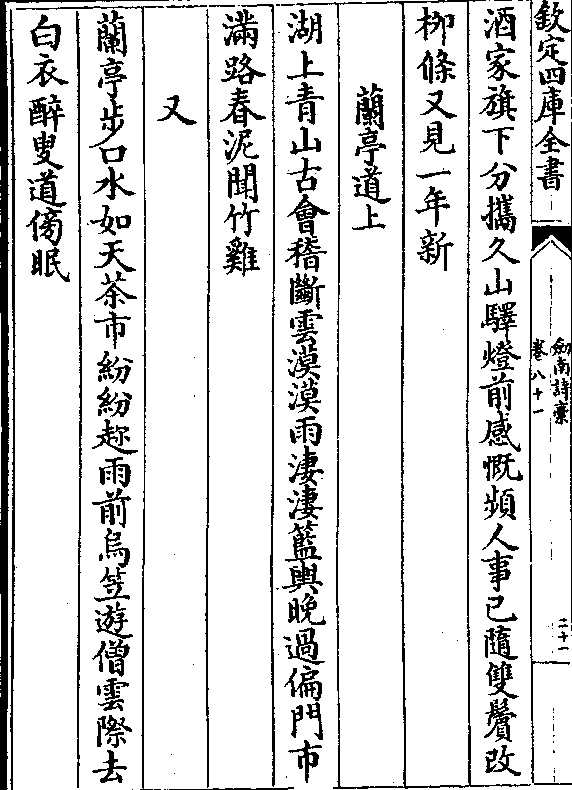 欽定四庫全書
劍南詩稾
卷八十一
二十一
酒家旗下分攜久山驛燈前感慨頻人事已隨雙鬢改
柳條又見一年新
蘭亭道上
湖上青山古會稽斷雲漠漠雨淒淒籃輿晚過偏門市
滿路春泥聞竹雞
又
蘭亭步口水如天茶市紛紛趂雨前烏笠遊僧雲際去
白衣醉叟道傍眠